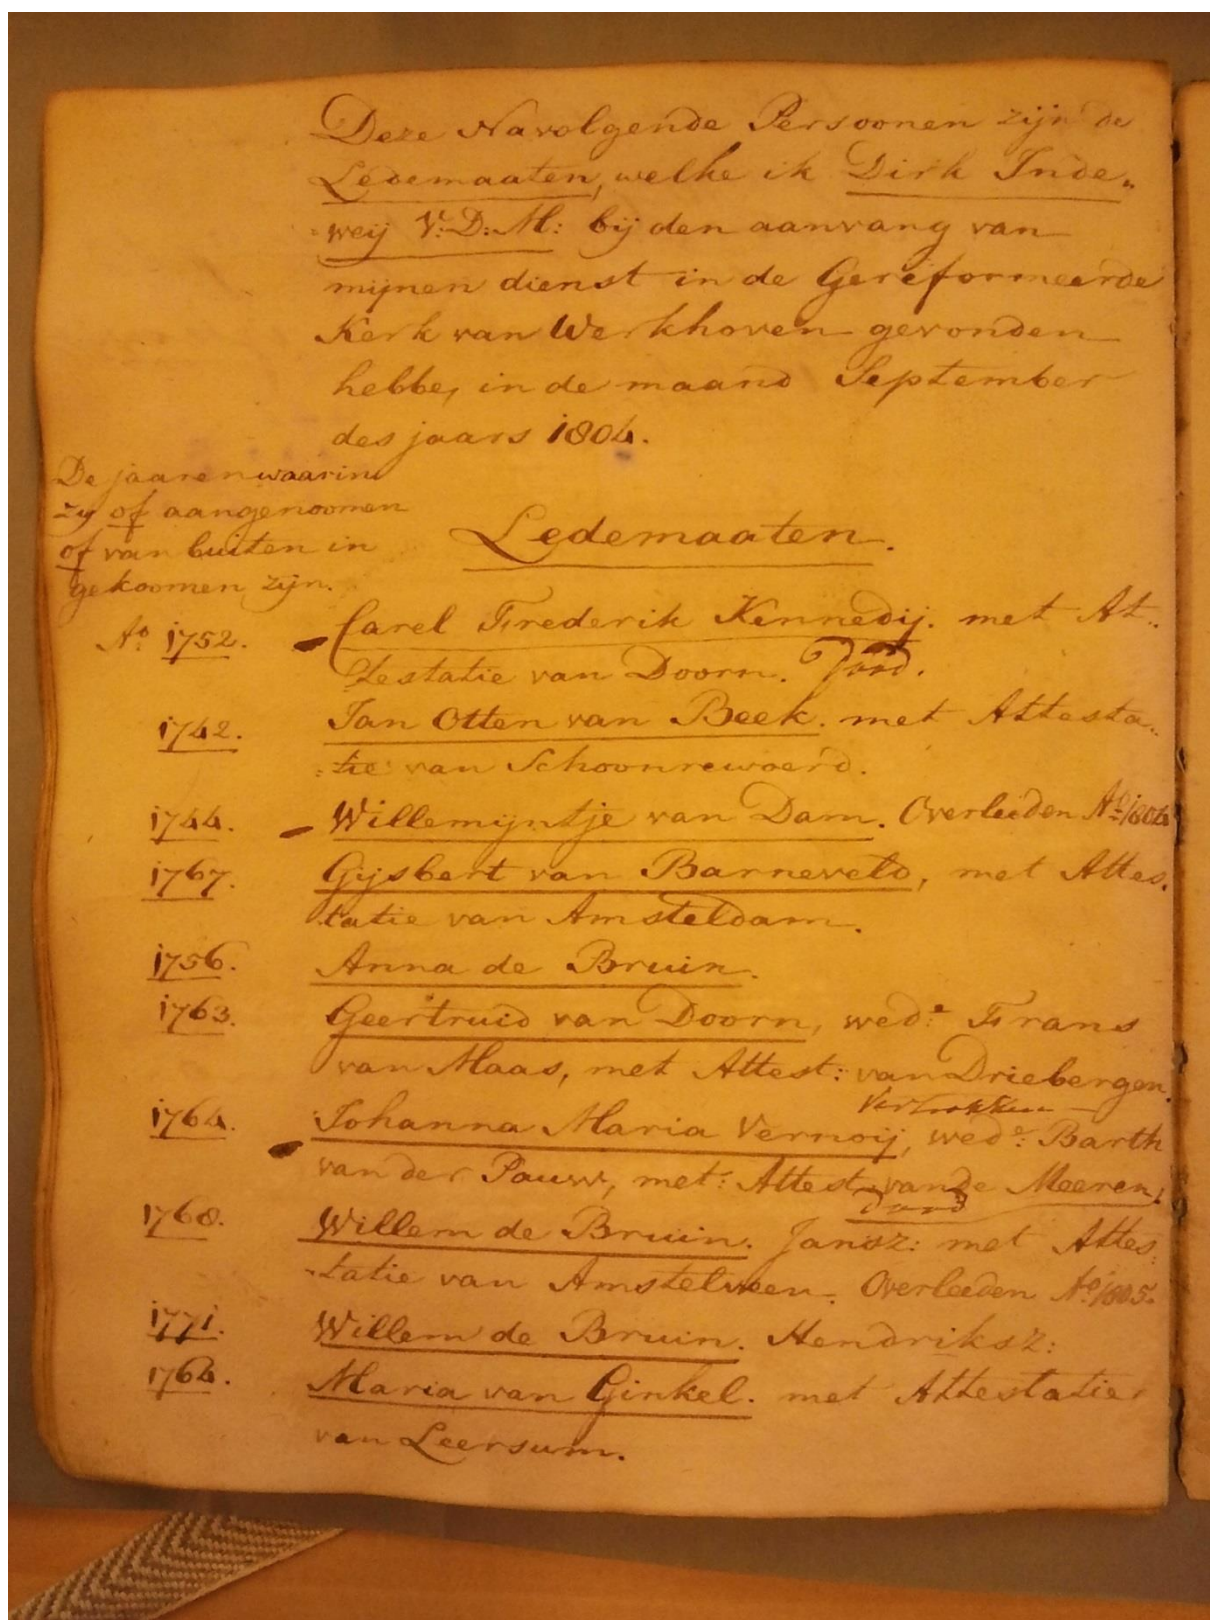 Deze Navolgende Persoonen zijn de
Ledemaaten, welke ik Dirk Inde„
weij V:D:M: bij den aanvang van
mijnen dienst in de Gereformeerde
Kerk van Werkhoven gevonden
hebbe, in de maand September
des jaars 1804.
De jaaren waarin
zij of aangenoomen
of van buiten in
gekoomen zijn.
Ledemaaten.
Ao 1752. Carel Frederik Kennedij. met At„
testatie van Doorn. Dood.
1742. Jan Otten van Beek. met Attesta„
tie van Schoonrewoerd.
1744. Willemijntje van Dam. Overleeden Ao 1804
1767. Gijsbert van Barneveld, met Attes„
tatie van Amsteldam.
1756. Anna de Bruin.
1763. Geertruid van Doorn, wede: Frans
van Maas, met Attest: van Driebergen.
Vertrokken
1764. Johanna Maria Vernooij, wede: Barth
van der Pauw, met Attest van de Meeren.
Dood
1768. Willem de Bruin. Jansz: met Attes:
tatie van Amstelveen. Overleeden Ao 1805.
1771. Willem de Bruin. Hendriksz:
1764. Maria van Ginkel. met Attestatie
van Leersum.